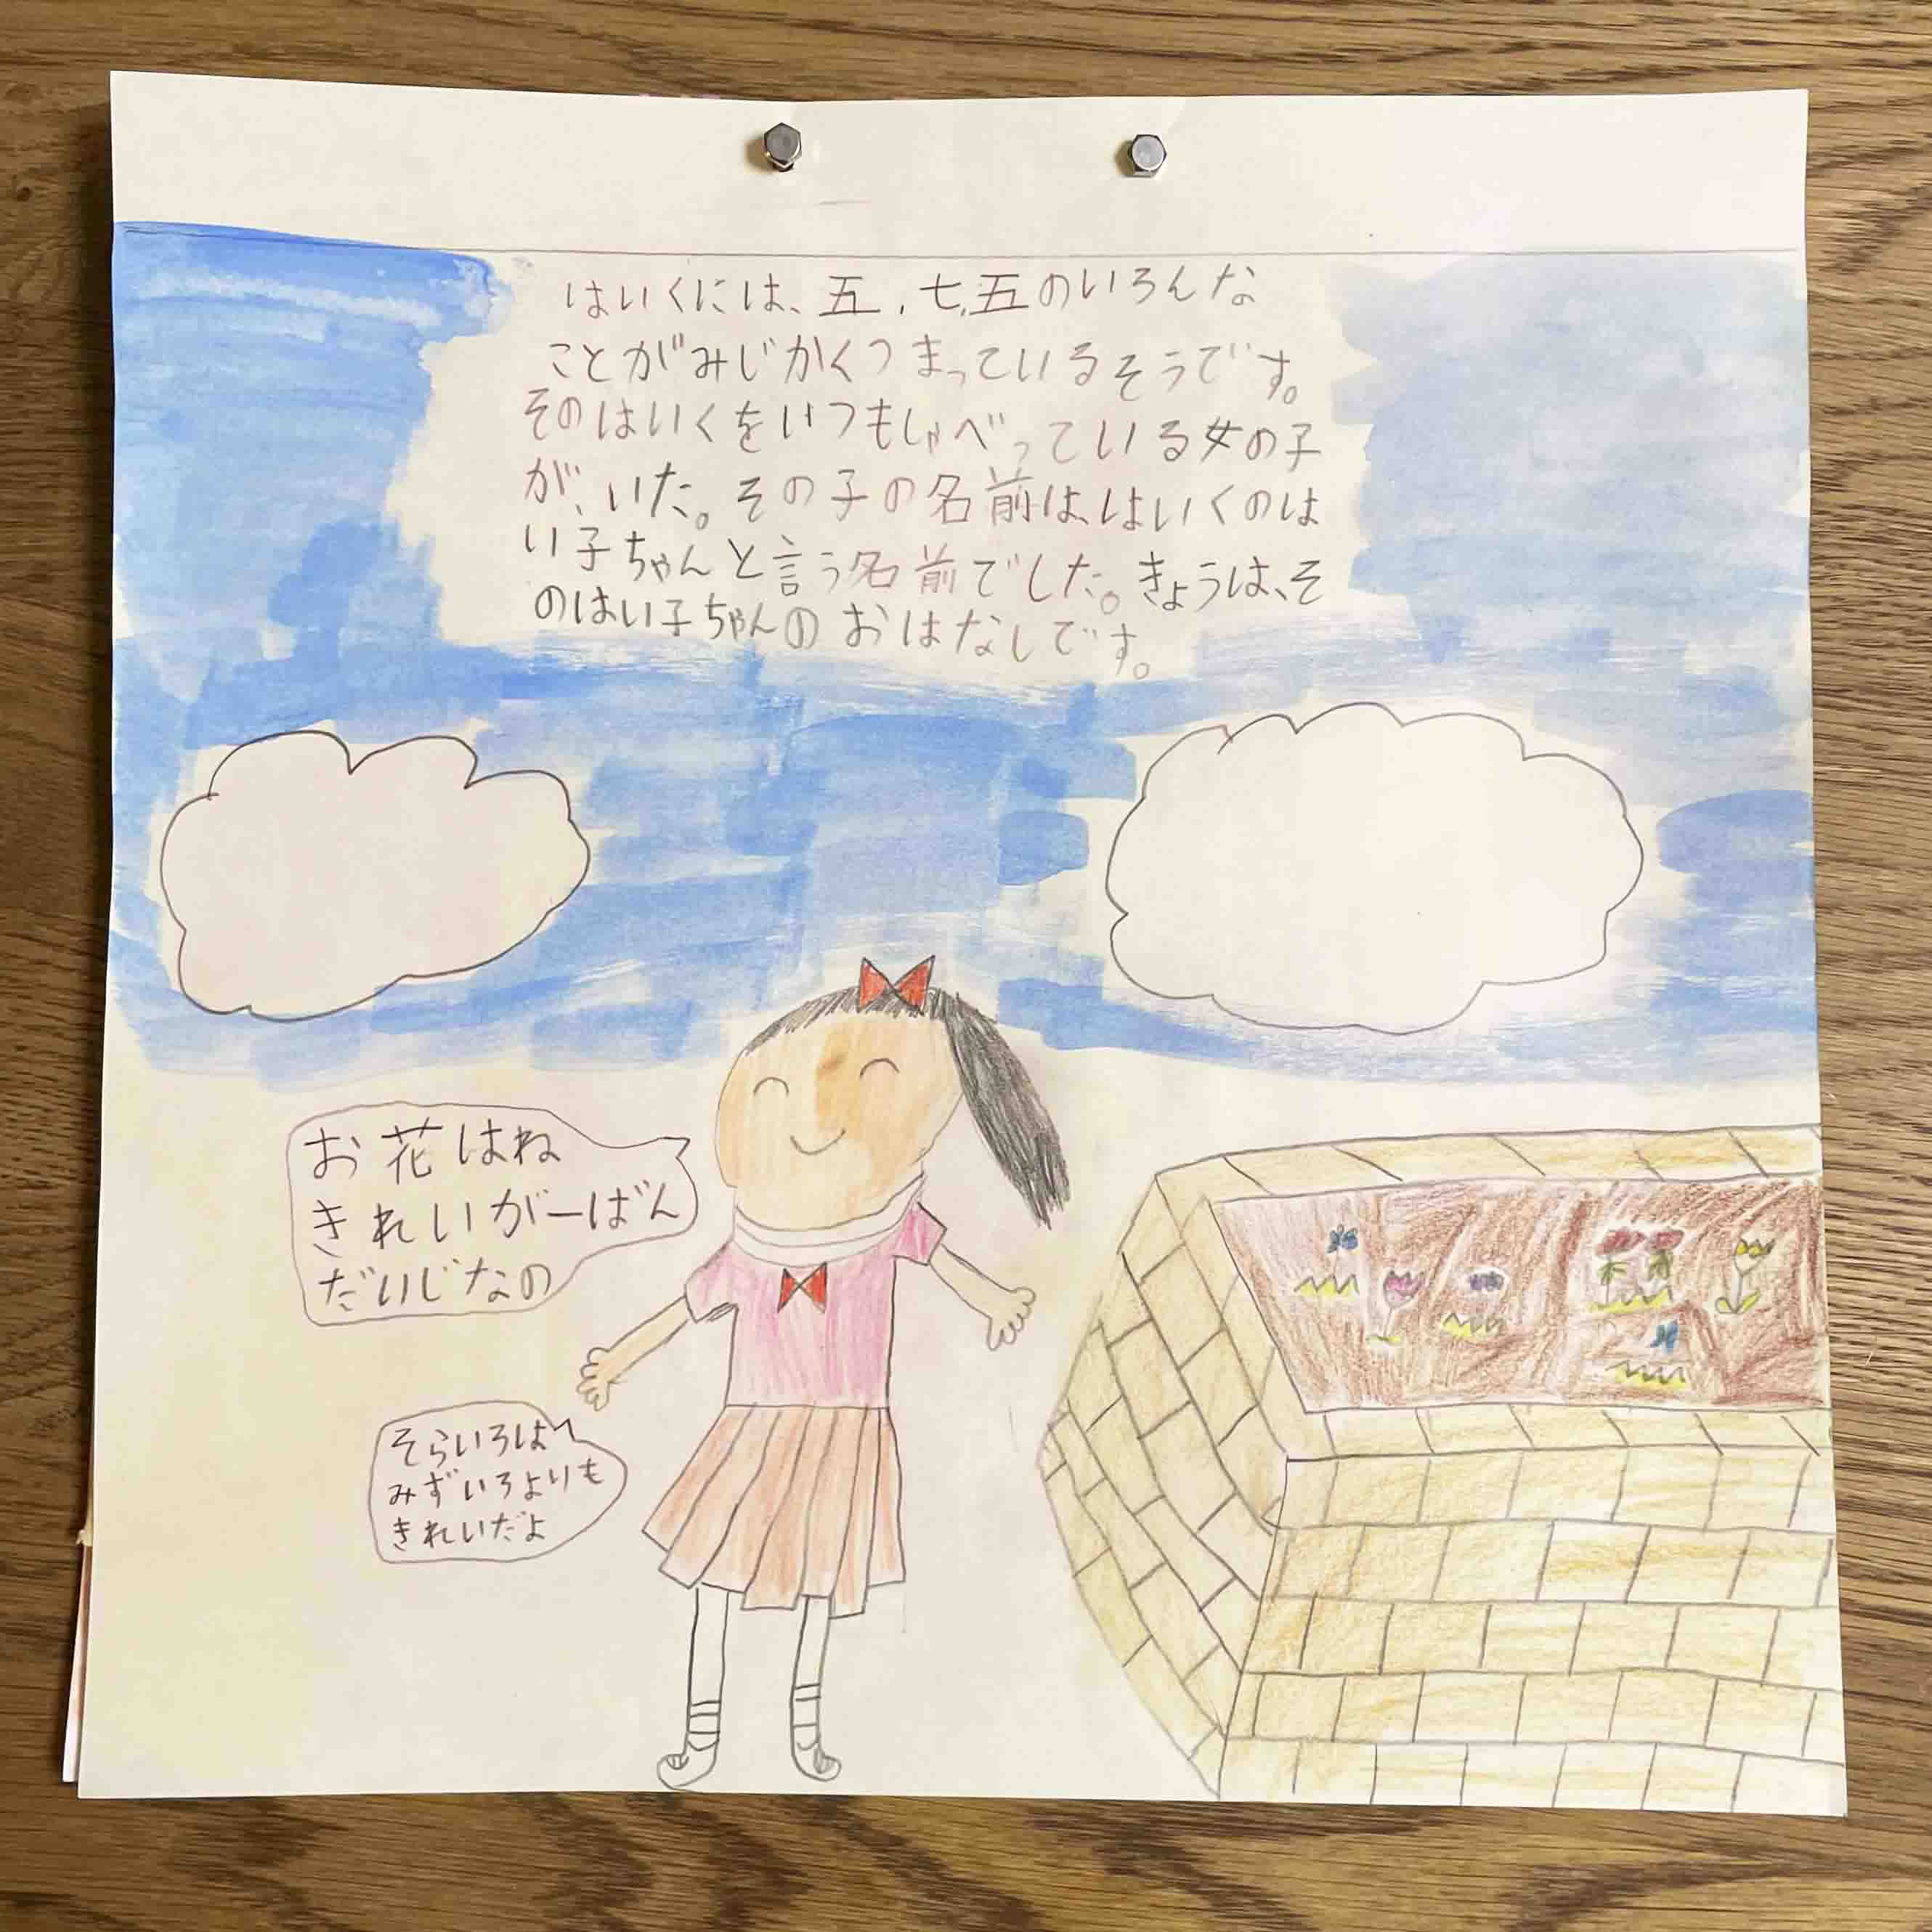 はいくには、五、七、五のいろんな
ことがみじかくつまっているそうです。
そのはいくをいつもしゃべっている女の子
が、いた。その子の名前は、はいくのは
い子ちゃんと言う名前でした。きょうは、そ
のはい子ちゃんのおはなしです。
お花はね
きれいがーばん
だいじなの
そらいろは
みずいろよりも
きれいだよ